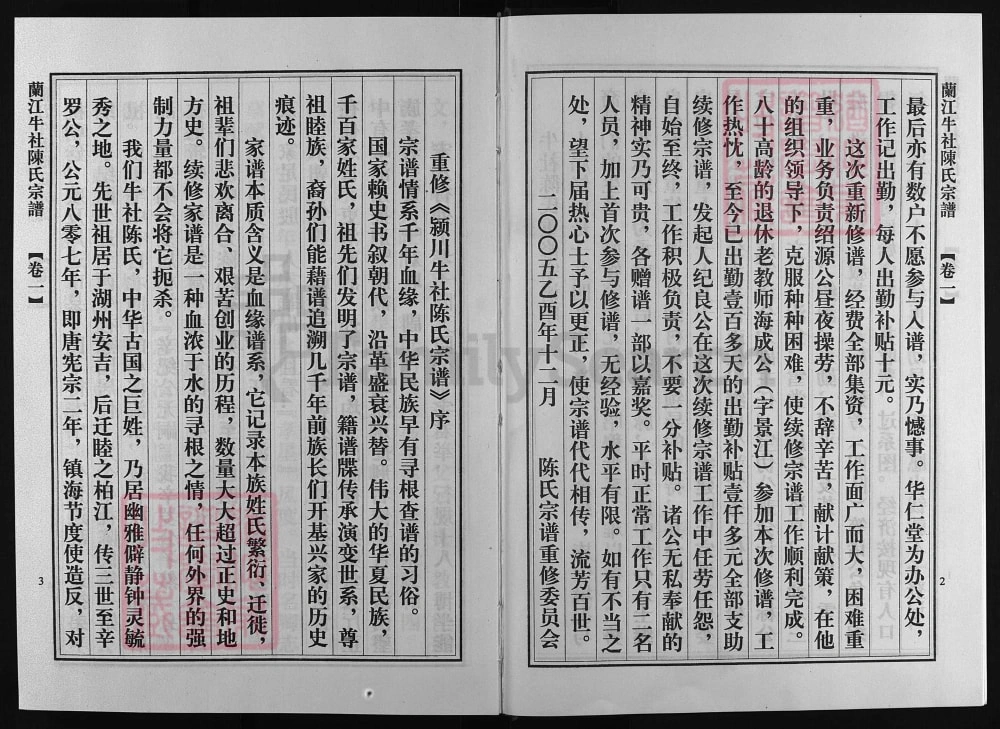 蘭江牛社陳氏宗譜 【卷一】
2
最后亦有数户不愿参与入谱，实乃憾事。华仁堂为办公处，
工作记出勤，每人出勤补贴十元。
这次重新修谱，经费全部集资，工作面广而大，困难重
重，业务负责绍源公昼夜操劳，不辞辛苦，献计献策，在他
的组织领导下，克服种种困难，使续修宗谱工作顺利完成。
八十高龄的退休老教师海成公（字景江）参加本次修谱，工
作热忱，至今已出勤壹百多天的出勤补贴壹仟多元全部支助
续修宗谱，发起人纪良公在这次续修宗谱工作中任劳任怨，
自始至终，工作积极负责，不要一分补贴。诸公无私奉献的
精神实乃可贵，各赠谱一部以嘉奖。平时正常工作只有二名
人员，加上首次参与修谱，无经验，水平有限。如有不当之
处，望下届热心士予以更正，使宗谱代代相传，流芳百世。
二〇〇五乙酉年十二月 陈氏宗谱重修委员会
重修《颍川牛社陈氏宗谱》序
宗谱情系千年血缘，中华民族早有寻根查谱的习俗。
中国家赖史书叙朝代，沿革盛衰兴替。伟大的华夏民族，
千百家姓氏，祖先们发明了宗谱，籍谱牒传承演变世系，尊
祖睦族，裔孙们能藉谱追溯几千年前族长们开基兴家的历史
痕迹。
家谱本质含义是血缘谱系，它记录本族姓氏繁衍、迁徙，
祖辈们悲欢离合、艰苦创业的历程，数量大大超过正史和地
方史。续修家谱是一种血浓于水的寻根之情，任何外界的强
制力量都不会将它扼杀。
我们牛社陈氏，中华古国之巨姓，乃居幽雅僻静钟灵毓
秀之地。先世祖居于湖州安吉，后迁睦之柏江，传二世至辛
罗公，公元八零七年，即唐宪宗二年，镇海节度使造反，对
蘭江牛社陳氏宗譜 【卷一】
3